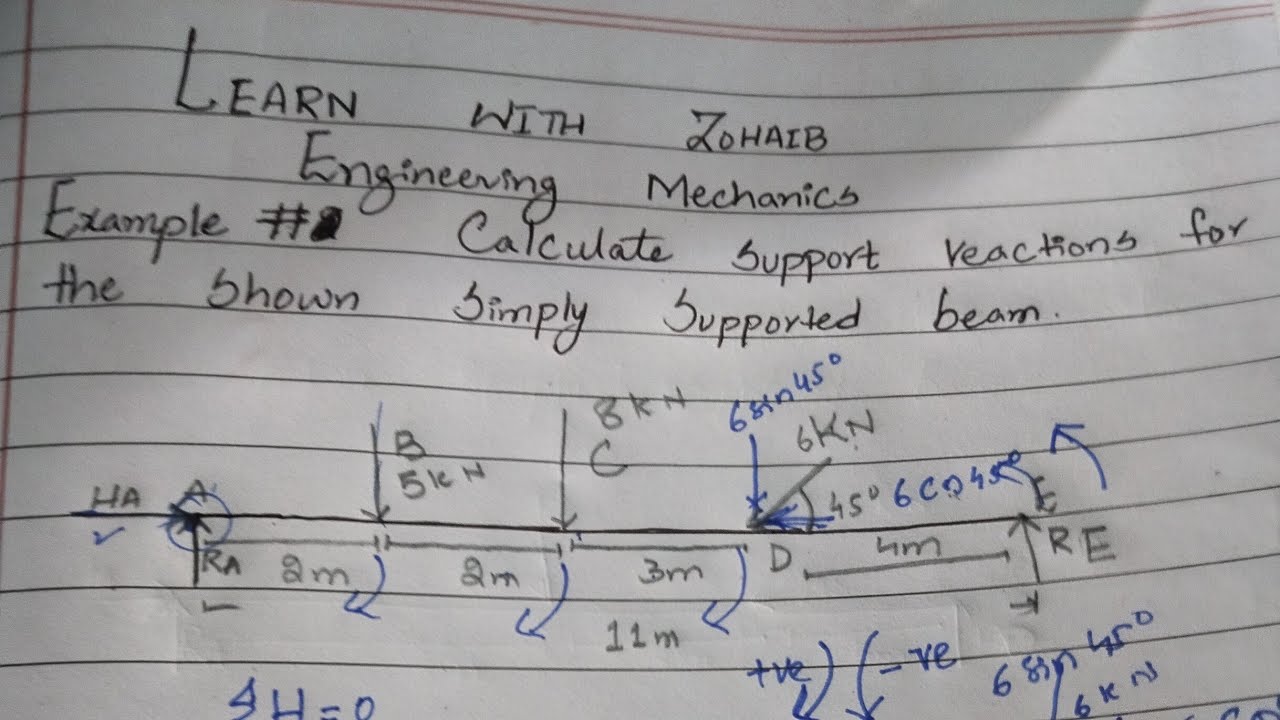 LEARN WITH ZOHAIB
Engineering Mechanics
Example # Calculate support reactions for
the shown simply supported beam.
6 sin 45°
8 kN
6 KN
B
C
5 kN
45° 6 cos 45°
E
HA
A
RA
2m
2m
3m
D
4m
RE
11m
+ve
-ve
6 sin 45°
6 kN
H = 0